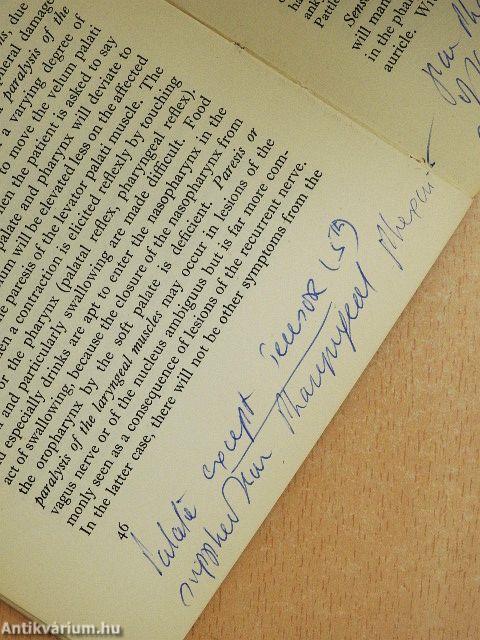 , due
peral damage
paralysis of the
a varying degree of
to move the velum palati
hen the patient is asked to say
palate and pharynx will deviate to
um will be elevated less on the affected
the paresis of the levator palati muscle. The
en a contraction is elicited reflexly by touching
or the pharynx (palatal reflex, pharyngeal reflex).
n and particularly swallowing are made difficult. Food
d especially drinks are apt to enter the nasopharynx in the
act of swallowing, because the closure of the nasopharynx from
the oropharynx by the soft palate is deficient. Paresis or
paralysis of the laryngeal muscles may occur in lesions of the
vagus nerve or of the nucleus ambiguus but is far more com-
monly seen as a consequence of lesions of the recurrent nerve.
In the latter case, there will not be other symptoms from the
46
Palate except Tensor (5th)
supplied Pharyngeal
ank
Parti
Sens
will man
in the phar
auricle. Wi
Antikvárium.hu